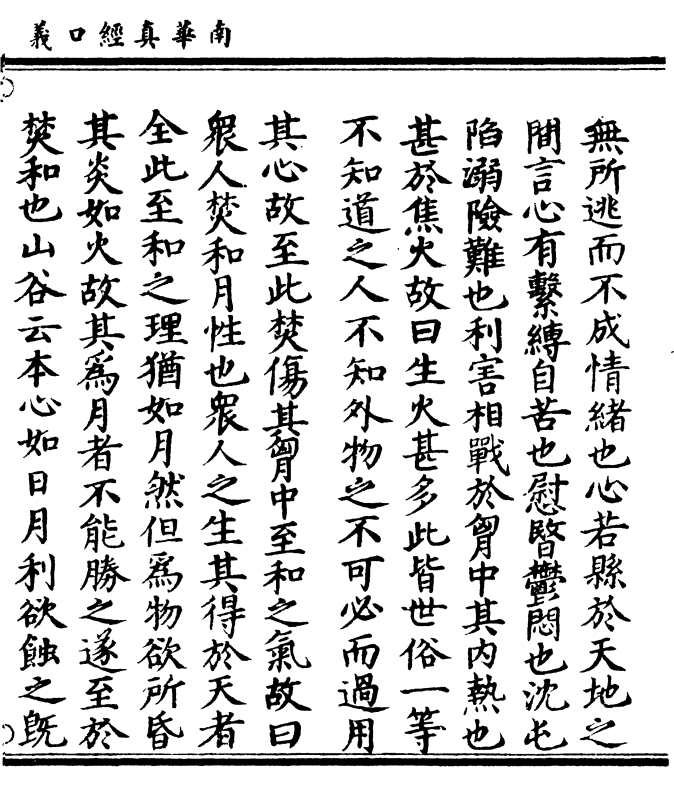 南華真經口義
無所逃而不成情緒也心若縣於天地之
間言心有繫縛自苦也慰暋鬱悶也沈屯
陷溺險難也利害相戰於胷中其內熱也
甚於焦火故曰生火甚多此皆世俗一等
不知道之人不知外物之不可必而過用
其心故至此焚傷其胷中至和之氣故曰
眾人焚和月性也眾人之生其得於天者
全此至和之理猶如月然但為物欲所昏
其炎如火故其為月者不能勝之遂至於
焚和也山谷云本心如日月利欲蝕之既